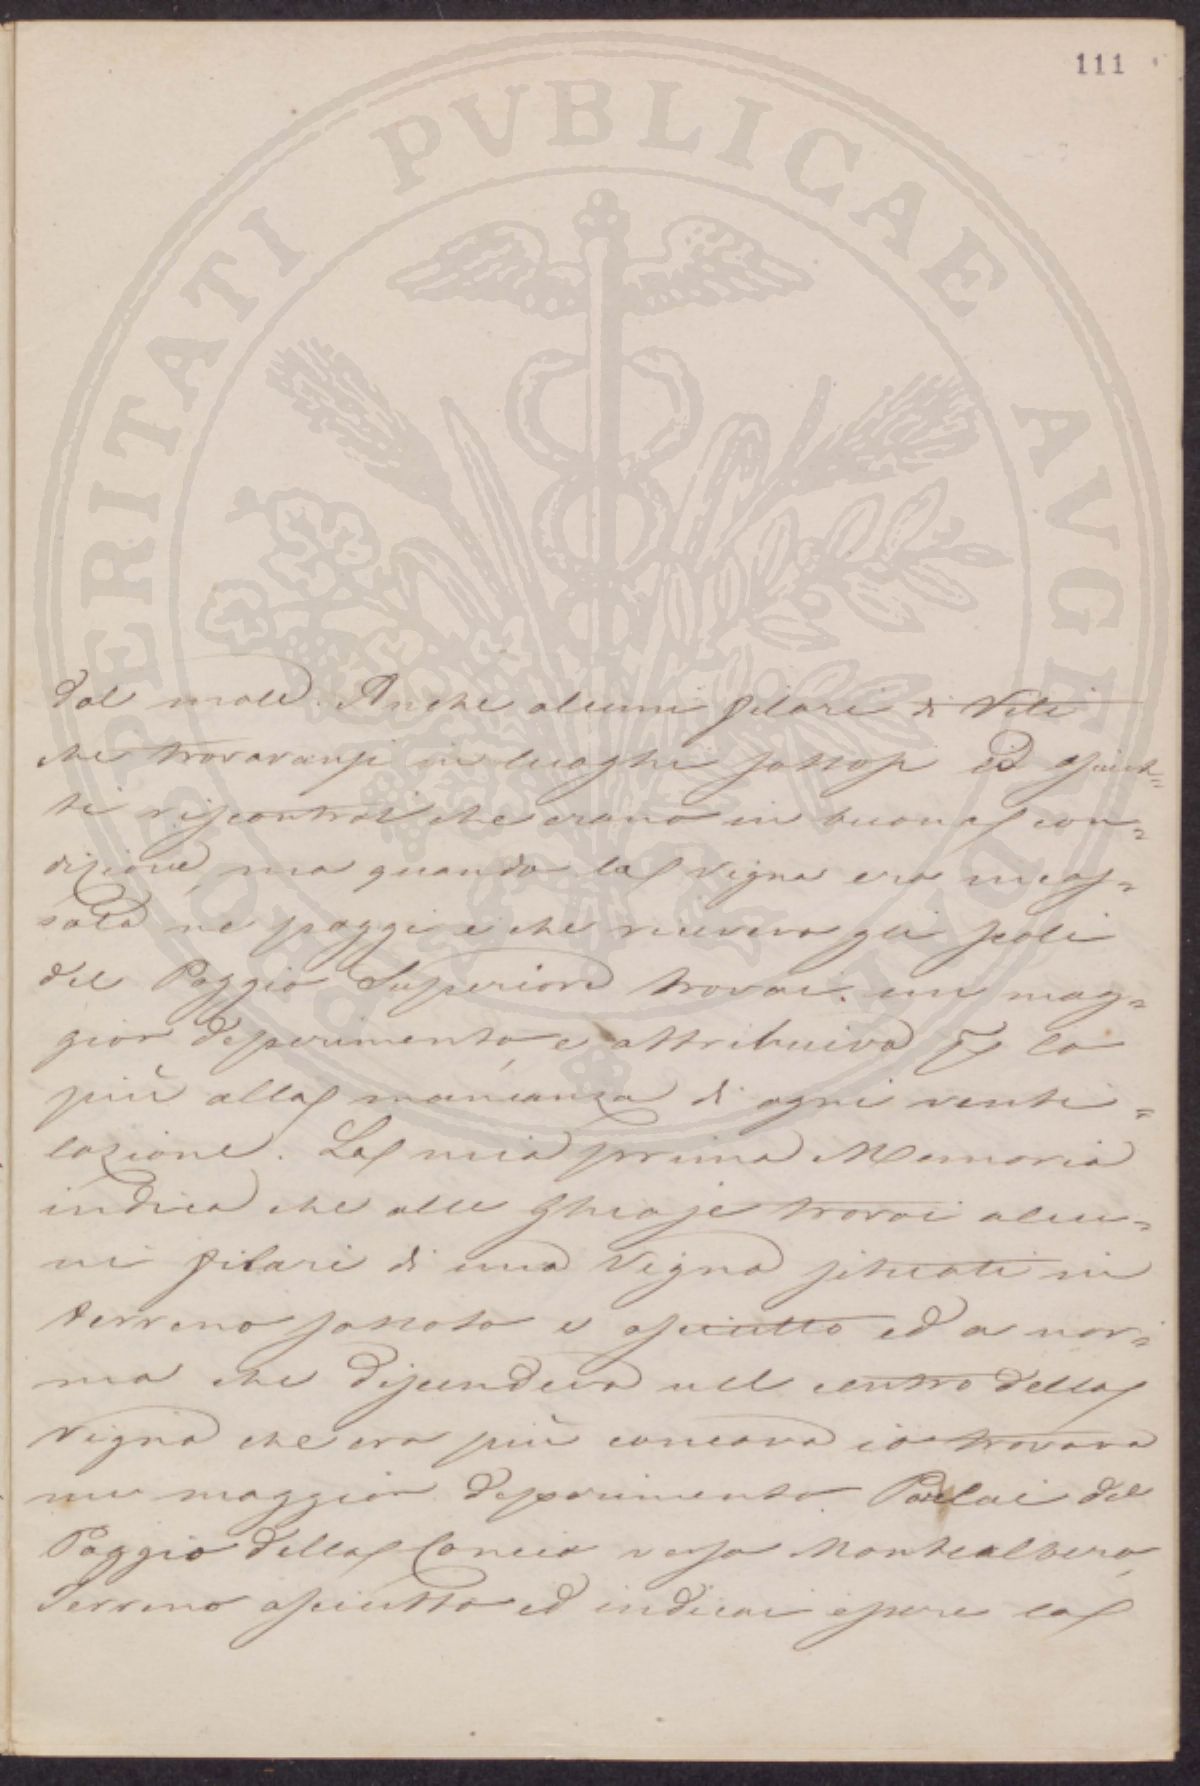 111
PROSPERITATI PVBLICAE AVGENDAE
dal male. Anche alcuni filari di Viti
che trovavansi in luoghi sassosi ed asciut=
ti riscontrai che erano in buona con=
dizione, ma quando la vigna era incas=
sata ne poggi e che riceveva gli scoli
del Poggio Superiore trovai un mag=
gior deperimento, e attribuiva per lo
più alla mancanza di ogni venti=
lazione. La mia prima Memoria
indica che alle Ghiaje trovai alcu=
ni filari di una Vigna situati in
terreno sassoso e asciutto ed a nor=
ma che discendeva nel centro della
Vigna che era più concava io trovava
un maggior deperimento. Parlai del
Poggio della Concia verso Montealbero,
Terreno asciutto ed indicai essere la